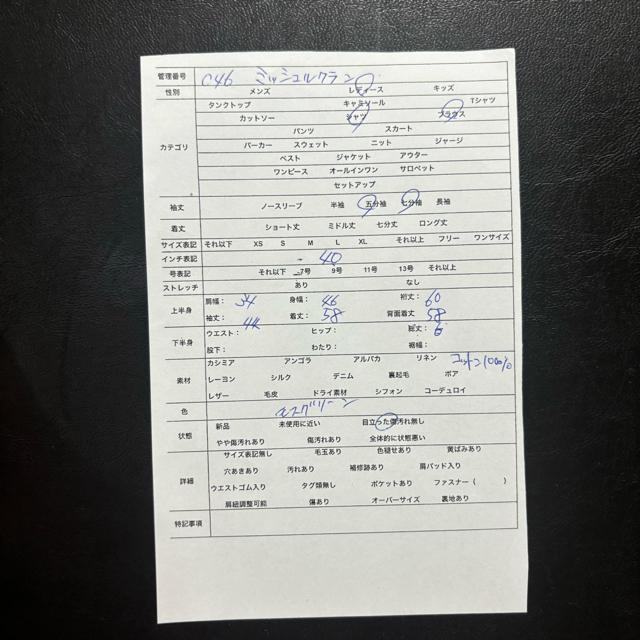 管理番号 C46 ミッシェルクラン
性別 メンズ レディース キッズ
タンクトップ キャミソール Tシャツ
カットソー シャツ ブラウス
パンツ スカート
カテゴリ パーカー スウェット ニット ジャージ
ベスト ジャケット アウター
ワンピース オールインワン サロペット
セットアップ
袖丈 ノースリーブ 半袖 五分袖 七分袖 長袖
着丈 ショート丈 ミドル丈 七分丈 ロング丈
サイズ表記 それ以下 XS S M L XL それ以上 フリー ワンサイズ
インチ表記 40
号表記 それ以下 7号 9号 11号 13号 それ以上
ストレッチ あり なし
上半身 肩幅： 34 身幅： 46 裄丈： 60
袖丈： 44 着丈： 58 背面着丈 58
下半身 ウエスト： ヒップ： 総丈：
股下： わたり： 裾幅：
カシミア アンゴラ アルパカ リネン コットン100%
素材 レーヨン シルク デニム 裏起毛 ボア
レザー 毛皮 ドライ素材 シフォン コーデュロイ
色 モスグリーン
状態 新品 未使用に近い 目立った傷汚れ無し
やや傷汚れあり 傷汚れあり 全体的に状態悪い
サイズ表記無し 毛玉あり 色褪せあり 黄ばみあり
詳細 穴あきあり 汚れあり 補修跡あり 肩パッド入り
ウエストゴム入り タグ類無し ポケットあり ファスナー（ ）
肩紐調整可能 傷あり オーバーサイズ 裏地あり
特記事項